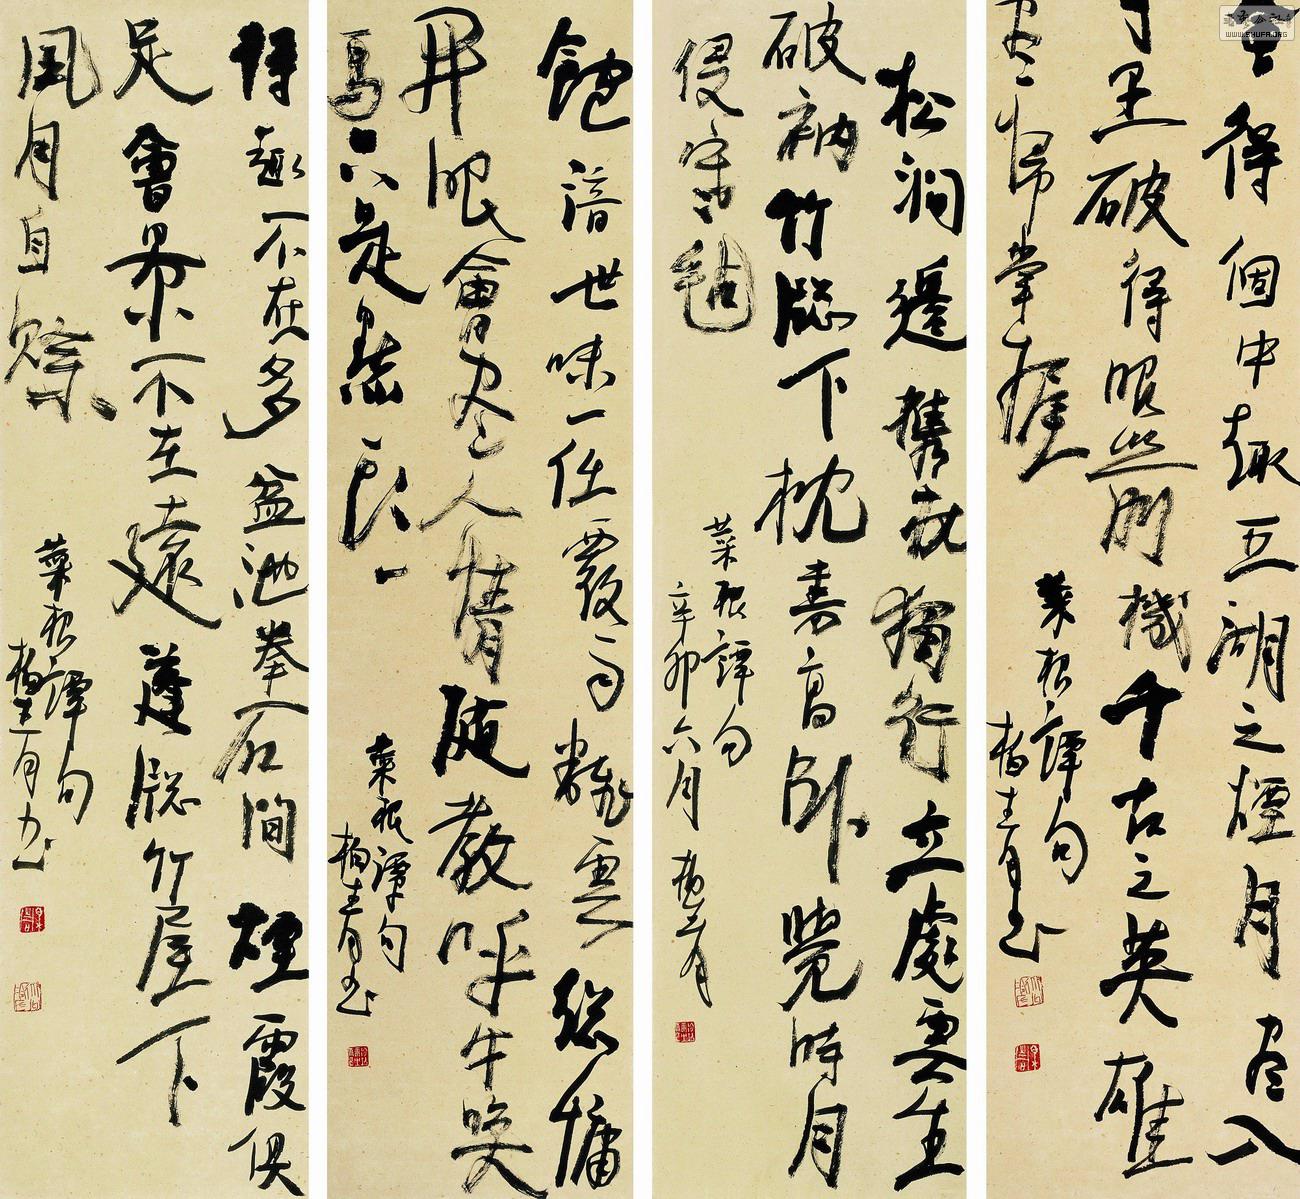 會得個中趣五湖之煙月尽入
寸里破得眼前機千古之英雄
尽歸掌握
菜根譚句
松澗邊攜杖獨行立處雲生
破衲竹牕下枕書高臥覺時月
侵寒氈
菜根譚句
辛卯六月
飽諳世味一任覆雨翻雲總慵
开眼會尽人情隨教呼牛喚
馬只是點頭
菜根譚句
得趣不在多盆池拳石間煙霞俱
足會景不在遠蓬牕竹屋下
風月自賒
菜根譚句
WWW.SHUFA.ORG